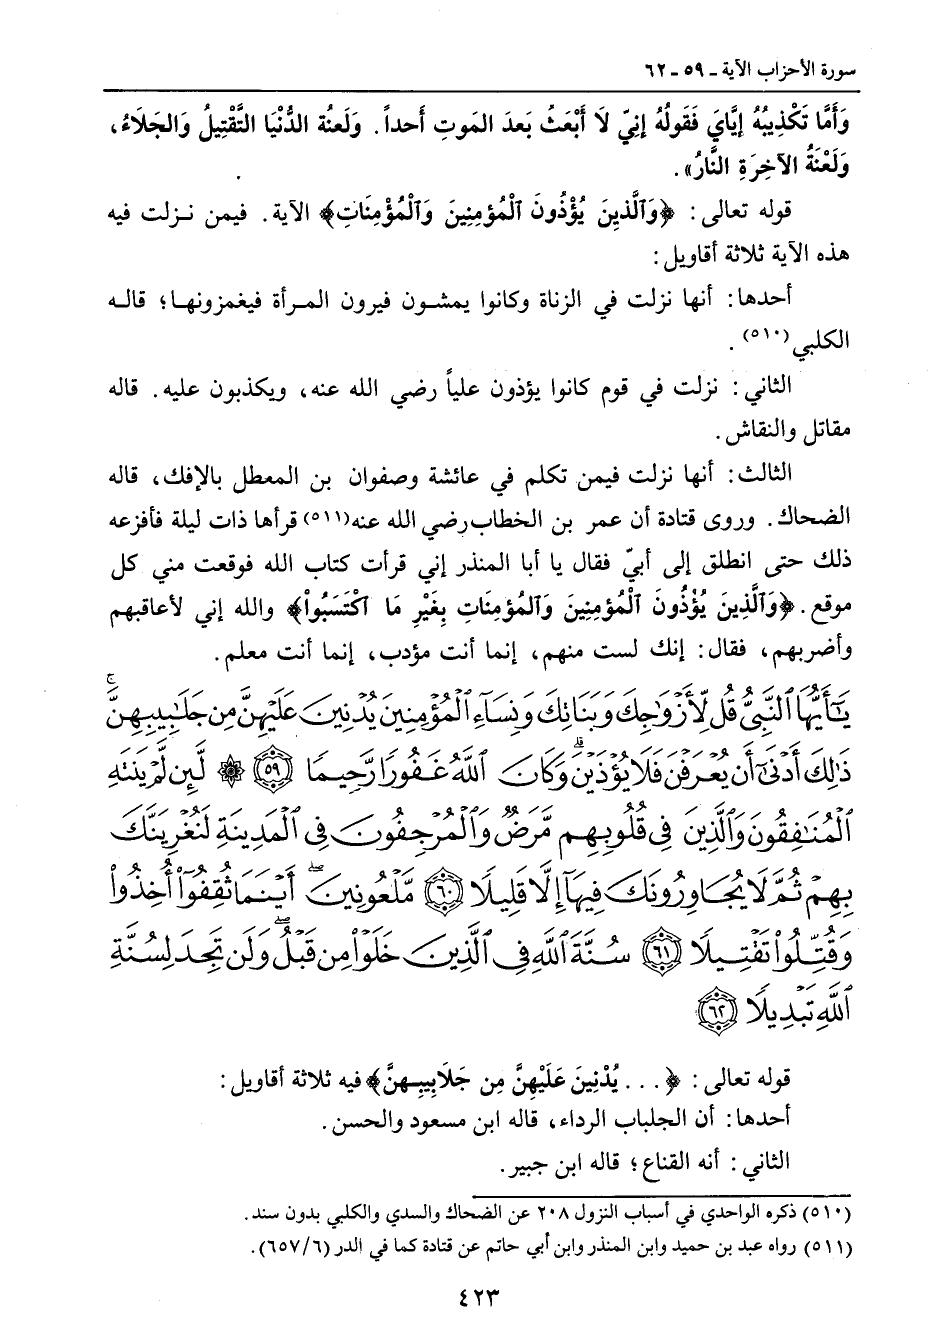 سورة الأحزاب الآية ـ ٥٩ ـ ٦٢
وَأَمَّا تَكْذِيبُهُ إِيَّايَ فَقَوْلُهُ إِنِّي لَا أَبْعَثُ بَعدَ المَوتِ أَحداً. وَلَعنَةُ الدُّنْيَا التَّقْتِيلُ وَالجَلَاءُ،
وَلَعْنَةُ الآخِرَةِ النَّارُ».
قوله تعالى: ﴿وَالَّذِينَ يُؤْذُونَ الْمُؤْمِنِينَ وَالْمُؤْمِنَاتِ﴾ الآية. فيمن نزلت فيه
هذه الآية ثلاثة أقاويل:
أحدها: أنها نزلت في الزناة وكانوا يمشون فيرون المرأة فيغمزونها؛ قاله
الكلبي(٥١٠).
الثاني: نزلت في قوم كانوا يؤذون علياً رضي الله عنه، ويكذبون عليه. قاله
مقاتل والنقاش.
الثالث: أنها نزلت فيمن تكلم في عائشة وصفوان بن المعطل بالإفك، قاله
الضحاك. وروى قتادة أن عمر بن الخطاب رضي الله عنه(٥١١) قرأها ذات ليلة فأفزعه
ذلك حتى انطلق إلى أبيّ فقال يا أبا المنذر إني قرأت كتاب الله فوقعت مني كل
موقع. ﴿وَالَّذِينَ يُؤْذُونَ الْمُؤْمِنِينَ وَالْمُؤمِنَاتِ بِغَيْرِ مَا اكْتَسَبُواْ﴾ والله إني لأعاقبهم
وأضربهم، فقال: إنك لست منهم، إنما أنت مؤدب، إنما أنت معلم.
يَٰٓأَيُّهَا ٱلنَّبِيُّ قُل لِّأَزْوَٰجِكَ وَبَنَاتِكَ وَنِسَآءِ ٱلْمُؤْمِنِينَ يُدْنِينَ عَلَيْهِنَّ مِن جَلَٰبِيبِهِنَّ ۚ
ذَٰلِكَ أَدْنَىٰٓ أَن يُعْرَفْنَ فَلَا يُؤْذَيْنَ ۗ وَكَانَ ٱللَّهُ غَفُورًا رَّحِيمًا ﴿٥٩﴾ ۞ لَّئِن لَّمْ يَنتَهِ
ٱلْمُنَٰفِقُونَ وَٱلَّذِينَ فِي قُلُوبِهِم مَّرَضٌ وَٱلْمُرْجِفُونَ فِي ٱلْمَدِينَةِ لَنُغْرِيَنَّكَ
بِهِمْ ثُمَّ لَا يُجَاوِرُونَكَ فِيهَآ إِلَّا قَلِيلًا ﴿٦٠﴾ مَّلْعُونِينَ ۖ أَيْنَمَا ثُقِفُوٓاْ أُخِذُواْ
وَقُتِّلُواْ تَقْتِيلًا ﴿٦١﴾ سُنَّةَ ٱللَّهِ فِي ٱلَّذِينَ خَلَوْاْ مِن قَبْلُ ۖ وَلَن تَجِدَ لِسُنَّةِ
ٱللَّهِ تَبْدِيلًا ﴿٦٢﴾
قوله تعالى: ﴿... يُدْنِينَ عَلَيْهِنَّ مِن جَلَابِيبِهِنَّ﴾ فيه ثلاثة أقاويل:
أحدها: أن الجلباب الرداء، قاله ابن مسعود والحسن.
الثاني: أنه القناع؛ قاله ابن جبير.
(٥١٠) ذكره الواحدي في أسباب النزول ٢٠٨ عن الضحاك والسدي والكلبي بدون سند.
(٥١١) رواه عبد بن حميد وابن المنذر وابن أبي حاتم عن قتادة كما في الدر (٦/ ٦٥٧).
٤٢٣